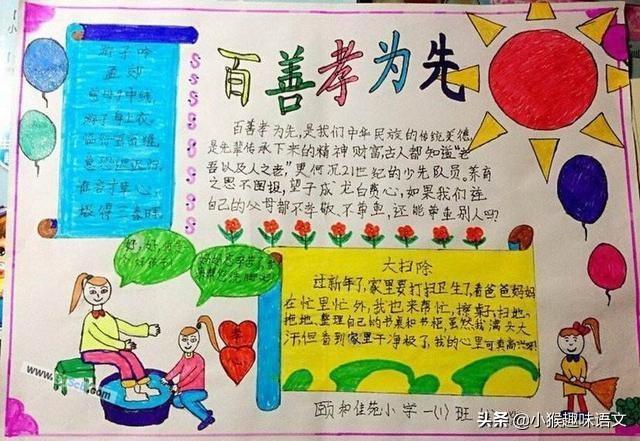 百善孝为先
游子吟
孟郊
慈母手中线,
游子身上衣。
临行密密缝,
意恐迟迟归。
谁言寸草心,
报得三春晖。
百善孝为先,是我们中华民族的传统美德,
是先辈传承下来的精神财富,古人都知道“老
吾以及人之老,”更何况21世纪的少先队员。养育
之恩不图报,望子成龙白费心,如果我们连
自己的父母都不孝敬、不尊重,还能尊重别人吗?
大扫除
过新年了,家里要打扫卫生了,看爸爸妈妈
在忙里忙外,我也来帮忙,擦桌子、扫地、
拖地、整理自己的书桌和书柜,虽然我满头大
汗但看到家里干净极了,我的心里可真高兴呀!
孝
颐和佳苑小学一(1)班
头条 @小猴趣味语文